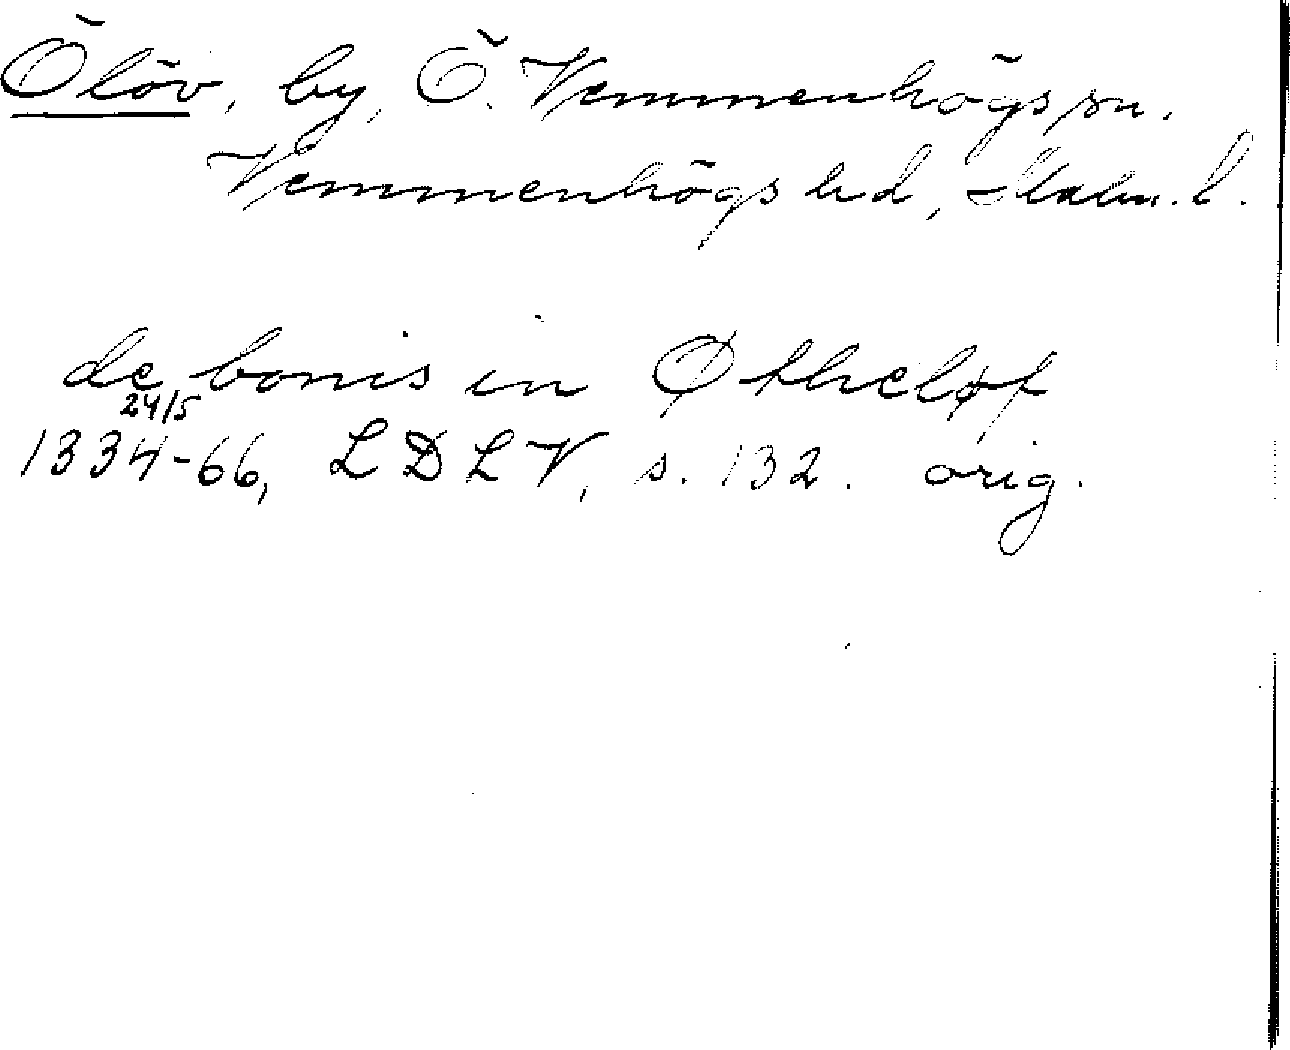 Ölöv, by, Ö. Vemmenhögs sn.
Vemmenhögs hd, Malm. l.
de bonis in Øtheløf
24/5
1334-66, LDLV, s. 132. orig.